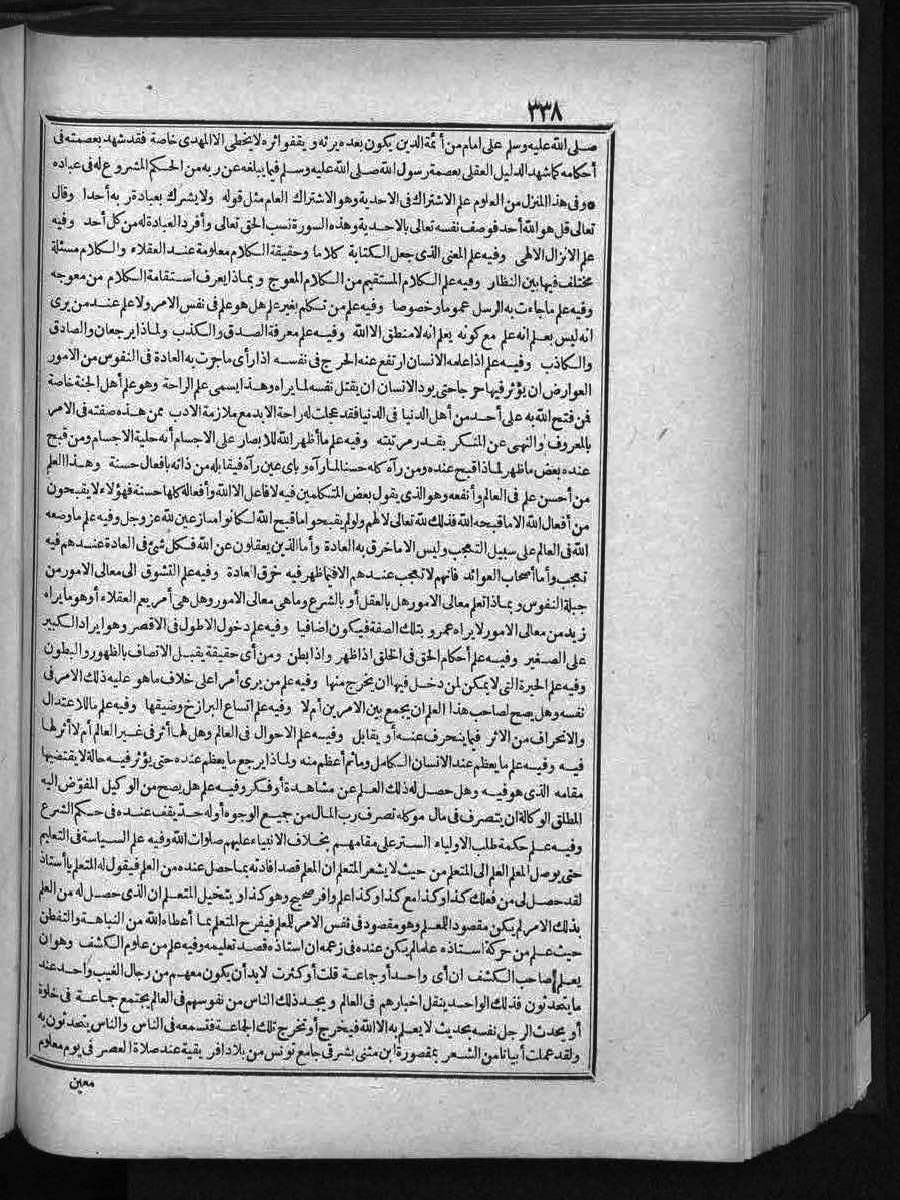 ٣٣٨
صلى الله عليه وسلم على امام من أئمة الدين يكون بعده يرثه ويقفو اثره لا يخطى الا المهدى خاصة فقد شهد بعصمته فى
أحكامه كما شهد الدليل العقلى بعصمة رسول الله صلى الله عليه وسلم فيما يبلغه عن ربه من الحكم المشروع له فى عباده
* وفى هذا المنزل من العلوم علم الاشتراك فى الاحدية وهو الاشتراك العام مثل قوله ولا يشرك بعبادة ربه أحدا وقال
تعالى قل هو الله أحد فوصف نفسه تعالى بالاحدية وهذه السورة نسب الحق تعالى وأفرد العبادة له من كل أحد وفيه
علم الانزال الالهى وفيه علم المعنى الذى جعل الكتابة كلاما وحقيقة الكلام معلومة عند العقلاء والكلام مسئلة
مختلف فيها بين النظار وفيه علم الكلام المستقيم من الكلام المعوج وبماذا يعرف استقامة الكلام من معوجه
وفيه علم ما جاءت به الرسل عموما وخصوصا وفيه علم من تكلم بغير علم هل هو علم فى نفس الامر ولا علم عند من يرى
انه ليس بعلم انه علم مع كونه يعلم انه لا منطق الا الله وفيه علم معرفة الصدق والكذب ولماذا يرجعان والصادق
والكاذب وفيه علم اذا علمه الانسان ارتفع عنه الحرج فى نفسه اذا رأى ما جرت به العادة فى النفوس من الامور
العوارض ان يؤثر فيها حرجا حتى يود الانسان ان يقتل نفسه لما يراه وهذا يسمى علم الراحة وهو علم أهل الجنة خاصة
فمن فتح الله به على أحد من أهل الدنيا فى الدنيا فقد عجلت له راحة الابد مع ملازمة الادب ممن هذه صفته فى الامر
بالمعروف والنهى عن المنكر بقدر مرتبته وفيه علم ما أظهر الله للابصار على الاجسام أنه حلية الاجسام ومن قبح
عنده بعض ما ظهر لماذا قبح عنده ومن رآه كله حسنا لما رآه وباى عين رآه فيقابله من ذاته بافعال حسنة وهذا العلم
من أحسن علم فى العالم وأنفعه وهو الذى يقول بعض المتكلمين فيه لا فاعل الا الله وأفعاله كلها حسنة فهؤلاء لا يقبحون
من أفعال الله الا ما قبحه الله فذلك لله تعالى لا لهم ولو لم يقبحوا ما قبح الله لكانوا منازعين لله عز وجل وفيه علم ما وضعه
الله فى العالم على سبيل التعجب وليس الا ما خرق به العادة وأما الذين يعقلون عن الله فكل شئ فى العادة عندهم فيه
تعجب وأما أصحاب العوائد فانهم لا تعجب عندهم الا فيما ظهر فيه خرق العادة وفيه علم التشوق الى معالى الامور من
جبلة النفوس وبماذا تعلم معالى الامور هل بالعقل أو بالشرع وما هى معالى الامور وهل هى أمر يعم العقلاء أو هو ما يراه
زيد من معالى الامور لا يراه عمرو بتلك الصفة فيكون اضافيا وفيه علم دخول الاطول فى الاقصر وهو ايراد الكبير
على الصغير وفيه علم أحكام الحق فى الخلق اذا ظهر واذا بطن ومن أى حقيقة يقبل الاتصاف بالظهور والبطون
وفيه علم الحيرة التى لا يمكن لمن دخل فيها ان يخرج منها وفيه علم من يرى أمرا على خلاف ما هو عليه ذلك الامر فى
نفسه وهل يصح لصاحب هذا العلم ان يجمع بين الامرين أم لا وفيه علم اتساع البرازخ وضيقها وفيه علم ما للاعتدال
والانحراف من الاثر فيما ينحرف عنه أو يقابل وفيه علم الاحوال فى العالم وهل لها أثر فى غير العالم أم لا أثر لها
فيه وفيه علم ما يعظم عند الانسان الكامل وما ثم أعظم منه ولماذا يرجع ما يعظم عنده حتى يؤثر فيه حالة لا يقتضيها
مقامه الذى هو فيه وهل حصل له ذلك العلم عن مشاهدة أو فكر وفيه علم هل يصح من الوكيل المفوّض اليه
المطلق الوكالة ان يتصرف فى مال موكله تصرف رب المال من جميع الوجوه أو له حد يقف عنده فى حكم الشرع
وفيه علم حكمة طلب الاولياء الستر على مقامهم بخلاف الانبياء عليهم صلوات الله وفيه علم السياسة فى التعليم
حتى يوصل المعلم العلم الى المتعلم من حيث لا يشعر المتعلم ان المعلم قصد افادته بما حصل عنده من العلم فيقول له المتعلم يا أستاذ
لقد حصل لى من فعلك كذا وكذا مع كذا وكذا علم وافر صحيح وهو كذا ويتخيل المتعلم ان الذى حصل له من العلم
بذلك الامر لم يكن مقصودا للمعلم وهو مقصود فى نفس الامر للمعلم فيفرح المتعلم بما أعطاه الله من النباهة والتفطن
حيث علم من حركة أستاذه علما لم يكن عنده فى زعمه ان استاذه قصد تعليمه وفيه علم من علوم الكشف وهو ان
يعلم صاحب الكشف ان أى واحد أو جماعة قلت أو كثرت لا بد أن يكون معهم من رجال الغيب واحد عند
ما يتحدثون فذلك الواحد ينقل اخبارهم فى العالم ويجد ذلك الناس من نفوسهم فى العالم يجتمع جماعة فى خلوة
أو يحدث الرجل نفسه بحديث لا يعلم به الا الله فيخرج أو تخرج تلك الجماعة فتسمعه فى الناس والناس يتحدثون به
ولقد عملت أبياتا من الشعر بمقصورة ابن مثنى بشرقى جامع تونس من بلاد افريقية عند صلاة العصر فى يوم معلوم
معين